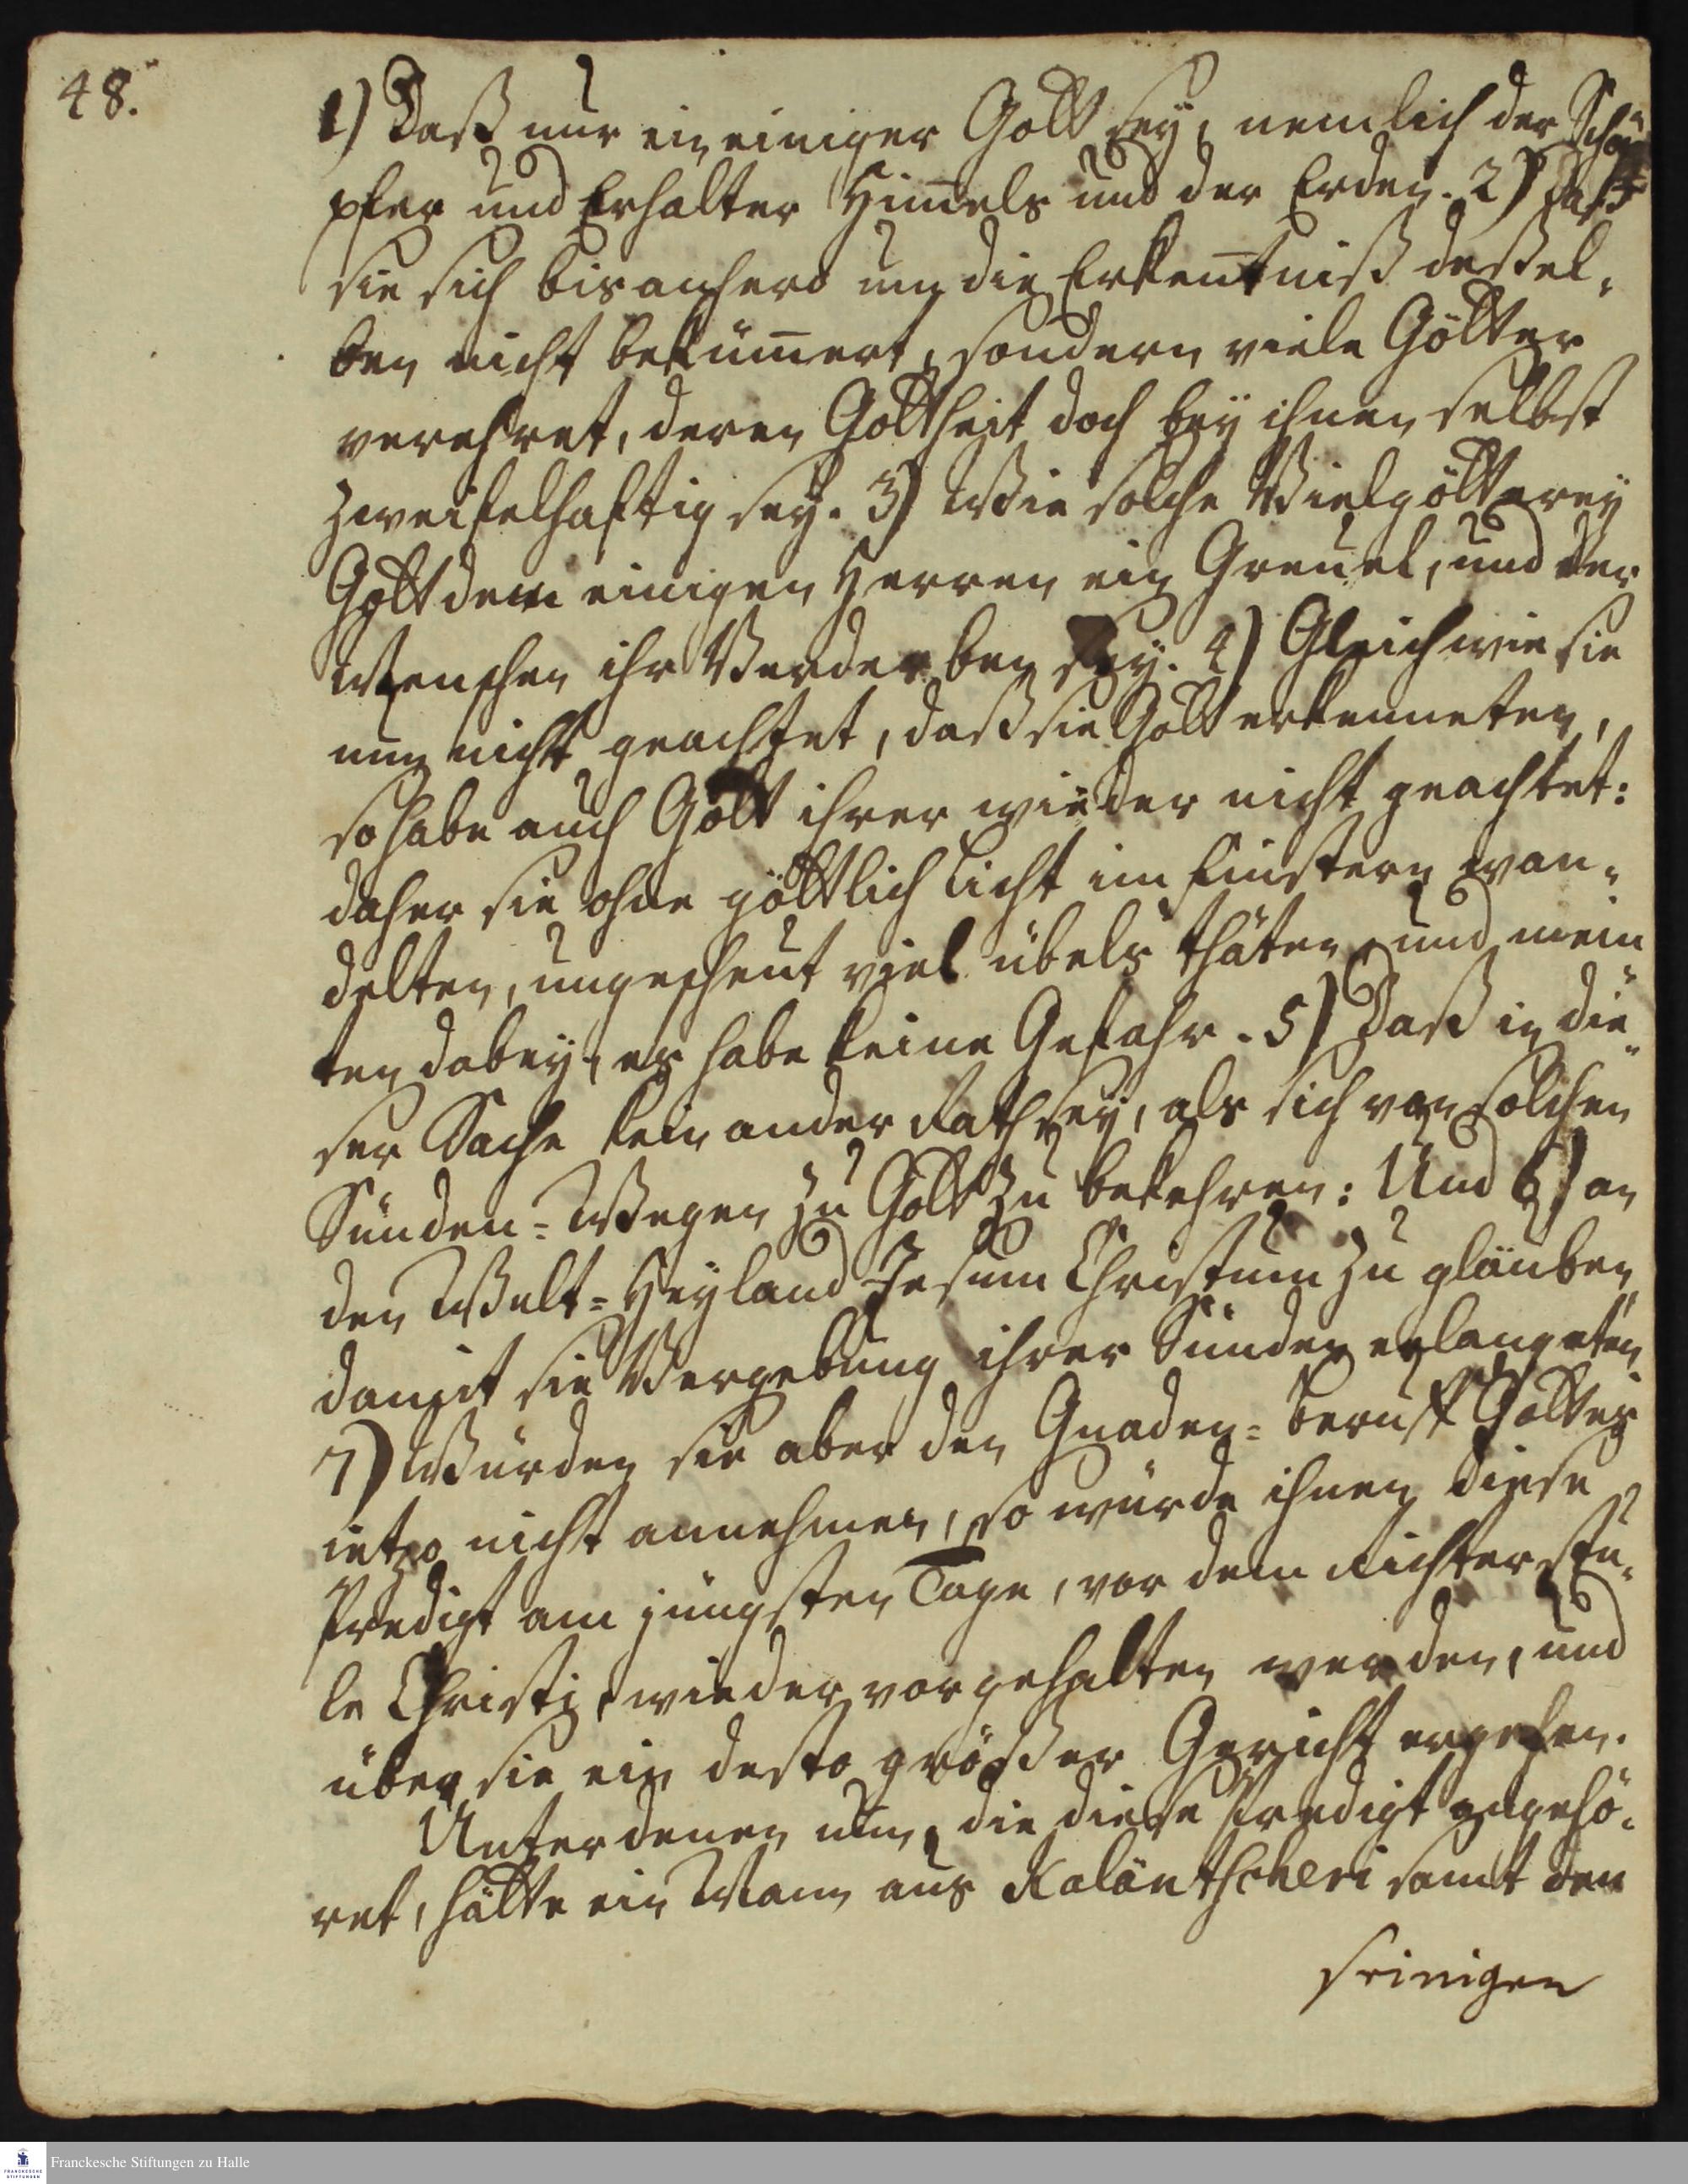 48.
1) Daß nur ein einiger Gott sey, nemlich der Schö-
pfer und Erhalter Him̅els und der Erden. 2) Daß
sie sich bis anhero um die Erken̅tniß deßel-
ben nicht beküm̅ert, sondern viele Götter
verehret, deren Gottheit doch bey ihnen selbst
zweifelhaftig sey. 3) Wie solche Vielgötterey
Gott dem einigen Herren ein Greuel, und der
Menschen ihr Verderben sey. 4) Gleichwie sie
nun nicht geachtet, daß sie Gott erkenneten,
so habe auch Gott ihrer wieder nicht geachtet:
daher sie ohne göttlich Licht im finstern wan-
delten, ungescheut viel übels thäten und mein
ten dabey, es habe keine Gefahr. 5) Daß in die-
ser Sache kein ander Rath sey, als sich von solchen
Sünden-Wegen zu Gott zu bekehren: Und 6) an
den Welt-Heyland Jesum Christum zu gläuben,
damit sie Vergebung ihrer Sünden erlangeten,
7) Würden sie aber den Gnaden-beruff Gottes
ietzo nicht annehmen, so würde ihnen diese
Predigt am jüngsten Tage, vor dem Richterstu-
le Christi, wieder vorgehalten werden, und
über sie ein desto größer Gericht ergehen.
Unter denen nun, die diese Predigt angehö-
ret, hätte ein Mann aus Kaläntscheri samt den
seinigen
Franckesche Stiftungen zu Halle